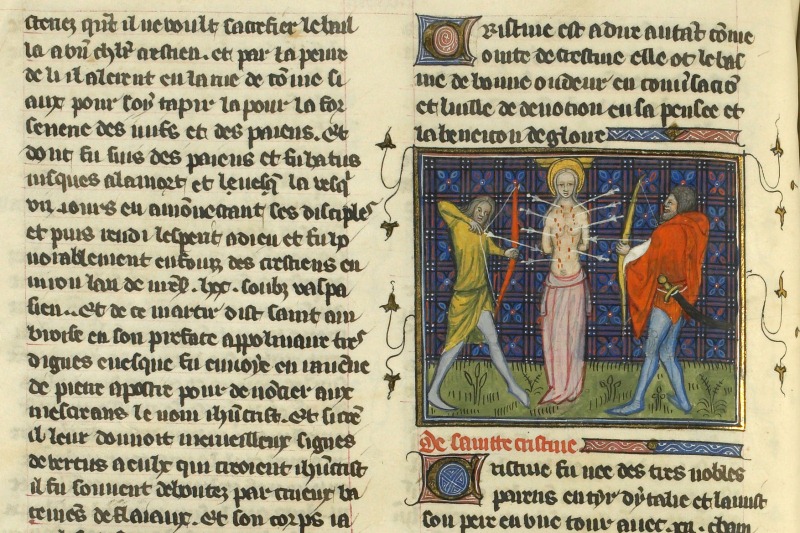 crenez qu'il ne voult sacrefier le bail
la a un chlr crestien. et par la peine
de li il alerent en la rue de come si
aux pour soy tapir la pour la for
senerie des iuifs et des paiens. Et
dont fu suis des paiens et fu batus
iusques a la mort et le uesq la vesq
vn iours en amonestant ses disciples
et puis rendi lesperit a dieu et fu
notablement enfouiz des crestiens en
uiron lan de nreš. lxx. soubz vaspa
sien.. Et de ce martir dist saint am
broise en son preface appolinaire tres
dignes euesque fu enuoye en rauene
de pierre apostre pour denoncier aux
mescreans le nom ihucrist. Et sicōe
il leur donnoit merueilleux signes
de vertus a eulx qui creoient ihucrist
il fu souuent deboutez par crueux ba
temens de flaiaux. Et son corps ia
Cristine est a dire autāt cōme
ointe de cresme elle ot le bas
me de bonne oudeur en conuersacō
et luille de deuotion en sa pensee et
la beneicon de gloire
De sainte cristine
Cristine fu nee des tres nobles
parens en tyr dytalie et la mist
son pere en vne tour auec .xii. cham